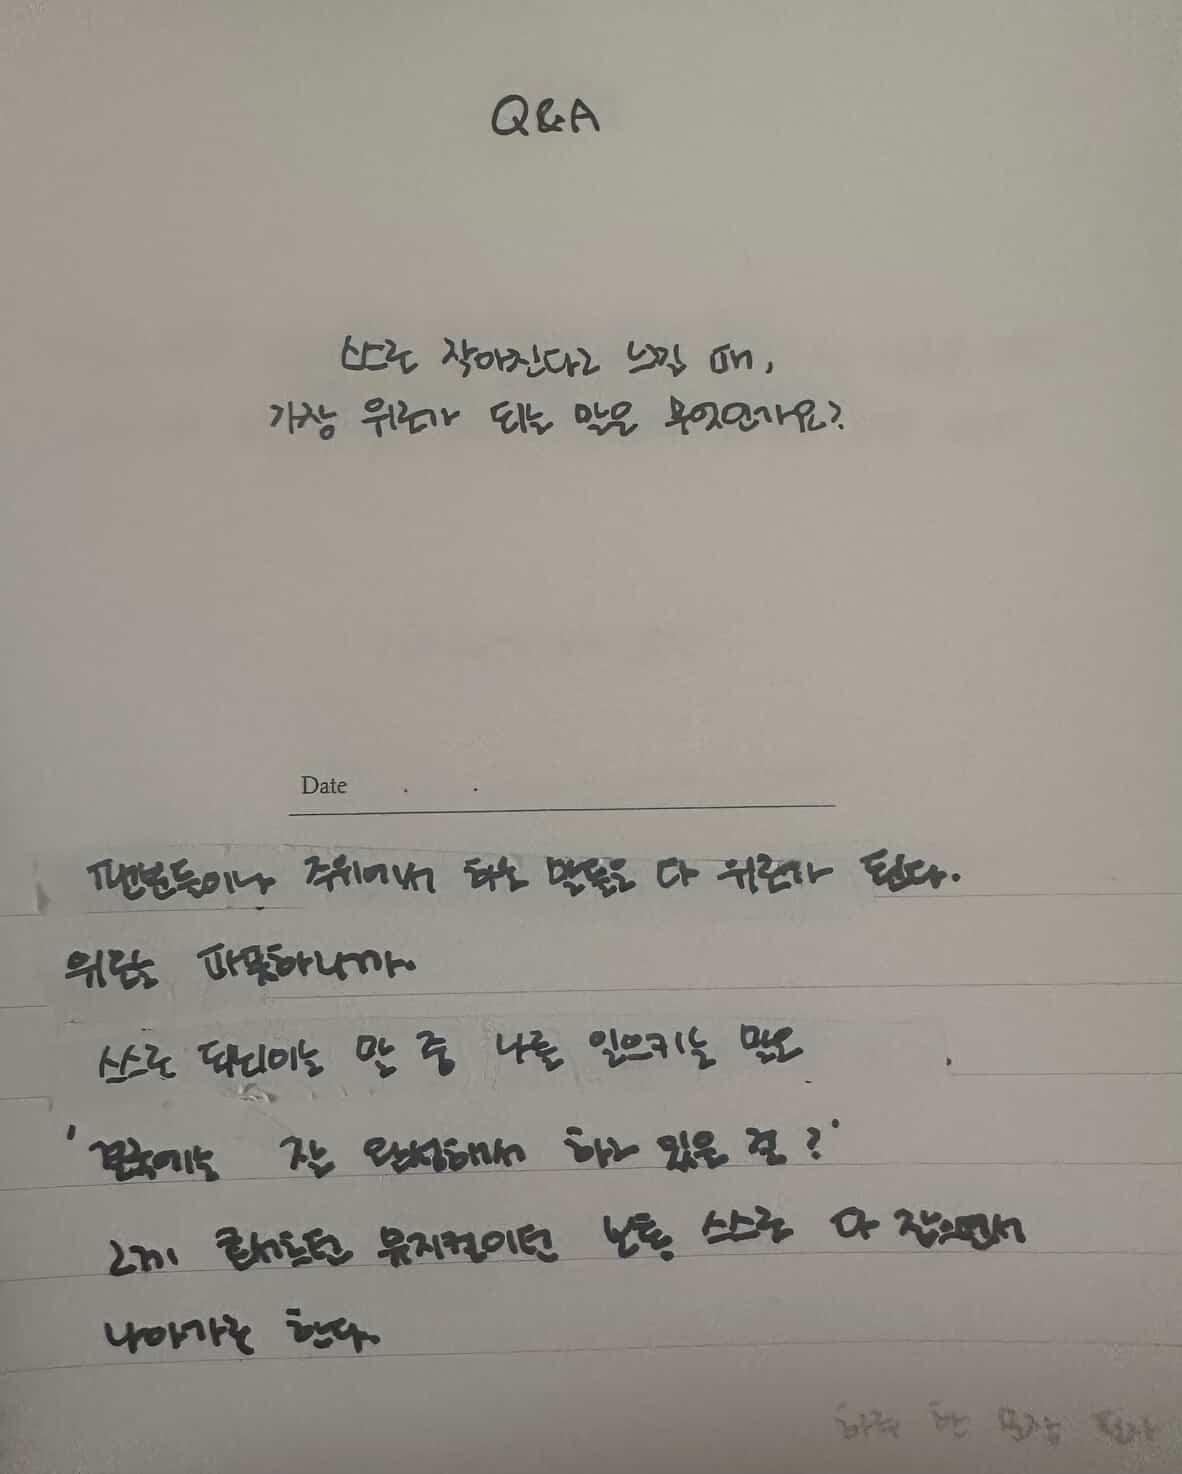 Q&A
스스로 작아진다고 느낄 때,
가장 위로가 되는 말은 무엇인가요?
Date . .
팬분들이나 주위에서 하는 말들은 다 위로가 된다.
위람는 따뜻하니까.
스스로 되뇌이는 말 중 나를 일으키는 말은
'결국에는 잘 완성해서 하고 있을 걸?'
그게 콘서트던 뮤지컬이던 보통 스스로 다 잡으면서
나아가곤 한다.
하루 한 문장 필사